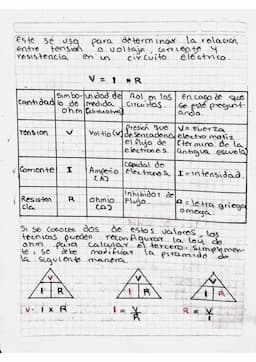 Este se usa para determinar la relación
entre tension o voltaje, corriente y
resistencia en un circuito eléctrico.
V = I * R
Cantidad
Simbolo de ohm
unidad de medida
Rol en los circuitos.
En caso de que se esté preguntando.
Tension
V
Voltio (V)
Presion que desencadena el flujo de electrones.
V = Fuerza electro motriz (termino de la antigua escuela)
Corriente
I
Amperio (A)
Caudal de electrones
I = intensidad.
Resistencia
R
ohmio (Ω)
Inhibidor de Flujo.
Ω = letra griega omega.
Si se conocen dos de estos valores, los
técnicos pueden reconfigurar la ley de
ohm para calcular el tercero. simplemen-
te, se debe modificar la piramide de
la siguiente manera.
V
I R
V
I R
V
I R
V = I x R
I = V/R
R = V/I